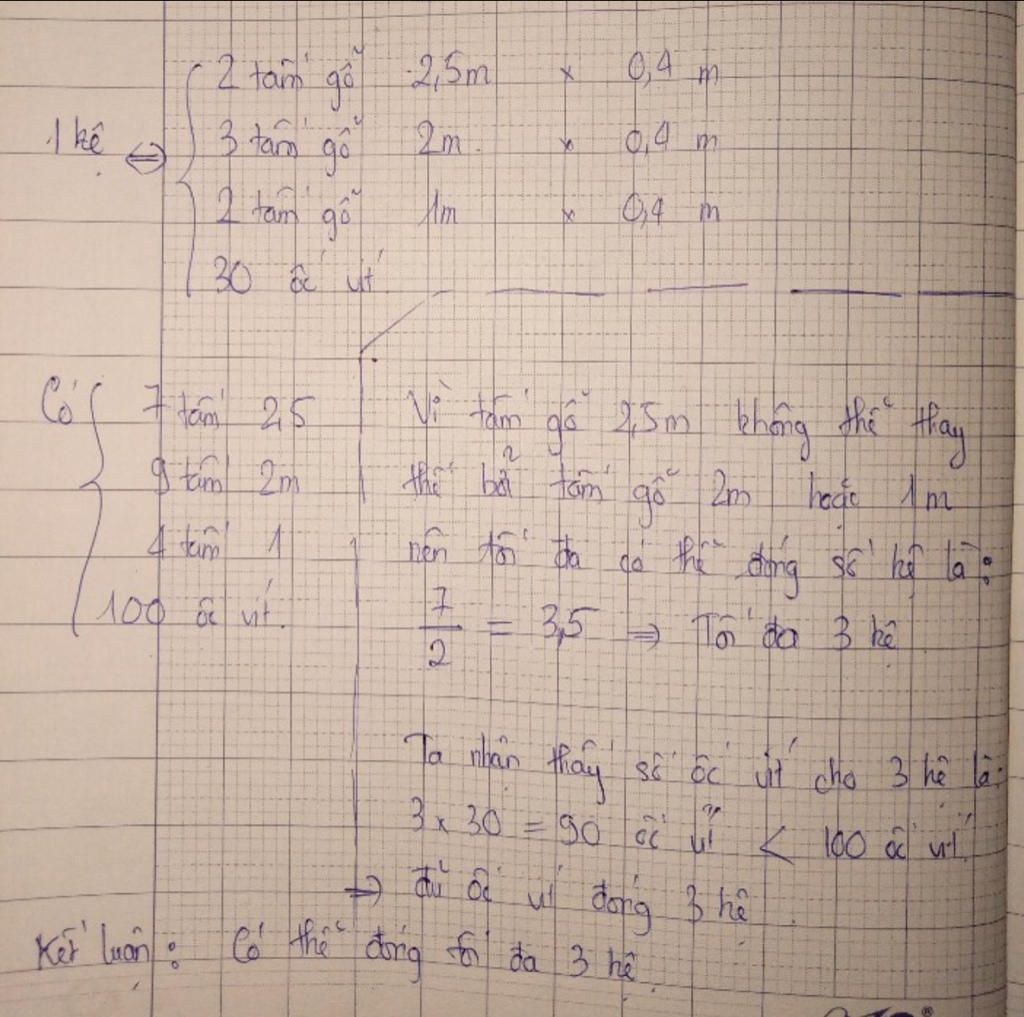 2 tấm gỗ 2,5m × 0,4 m
1 kệ ⇔ 3 tấm gỗ 2m × 0,4 m
2 tấm gỗ 1m × 0,4 m
30 ốc vít
Có 7 tấm 2,5
9 tấm 2m
4 tấm 1
100 ốc vít.
Vì tấm gỗ 2,5m không thể thay
thế bởi tấm gỗ 2m hoặc 1m
nên tối đa có thể đóng số kệ là:
7/2 = 3,5 ⇒ Tối đa 3 kệ
Ta nhận thấy số ốc vít cho 3 kệ là:
3 × 30 = 90 ốc vít < 100 ốc vít.
⇒ đủ ốc ví đóng 3 kệ.
Kết luận: Có thể đóng tối đa 3 kệ.